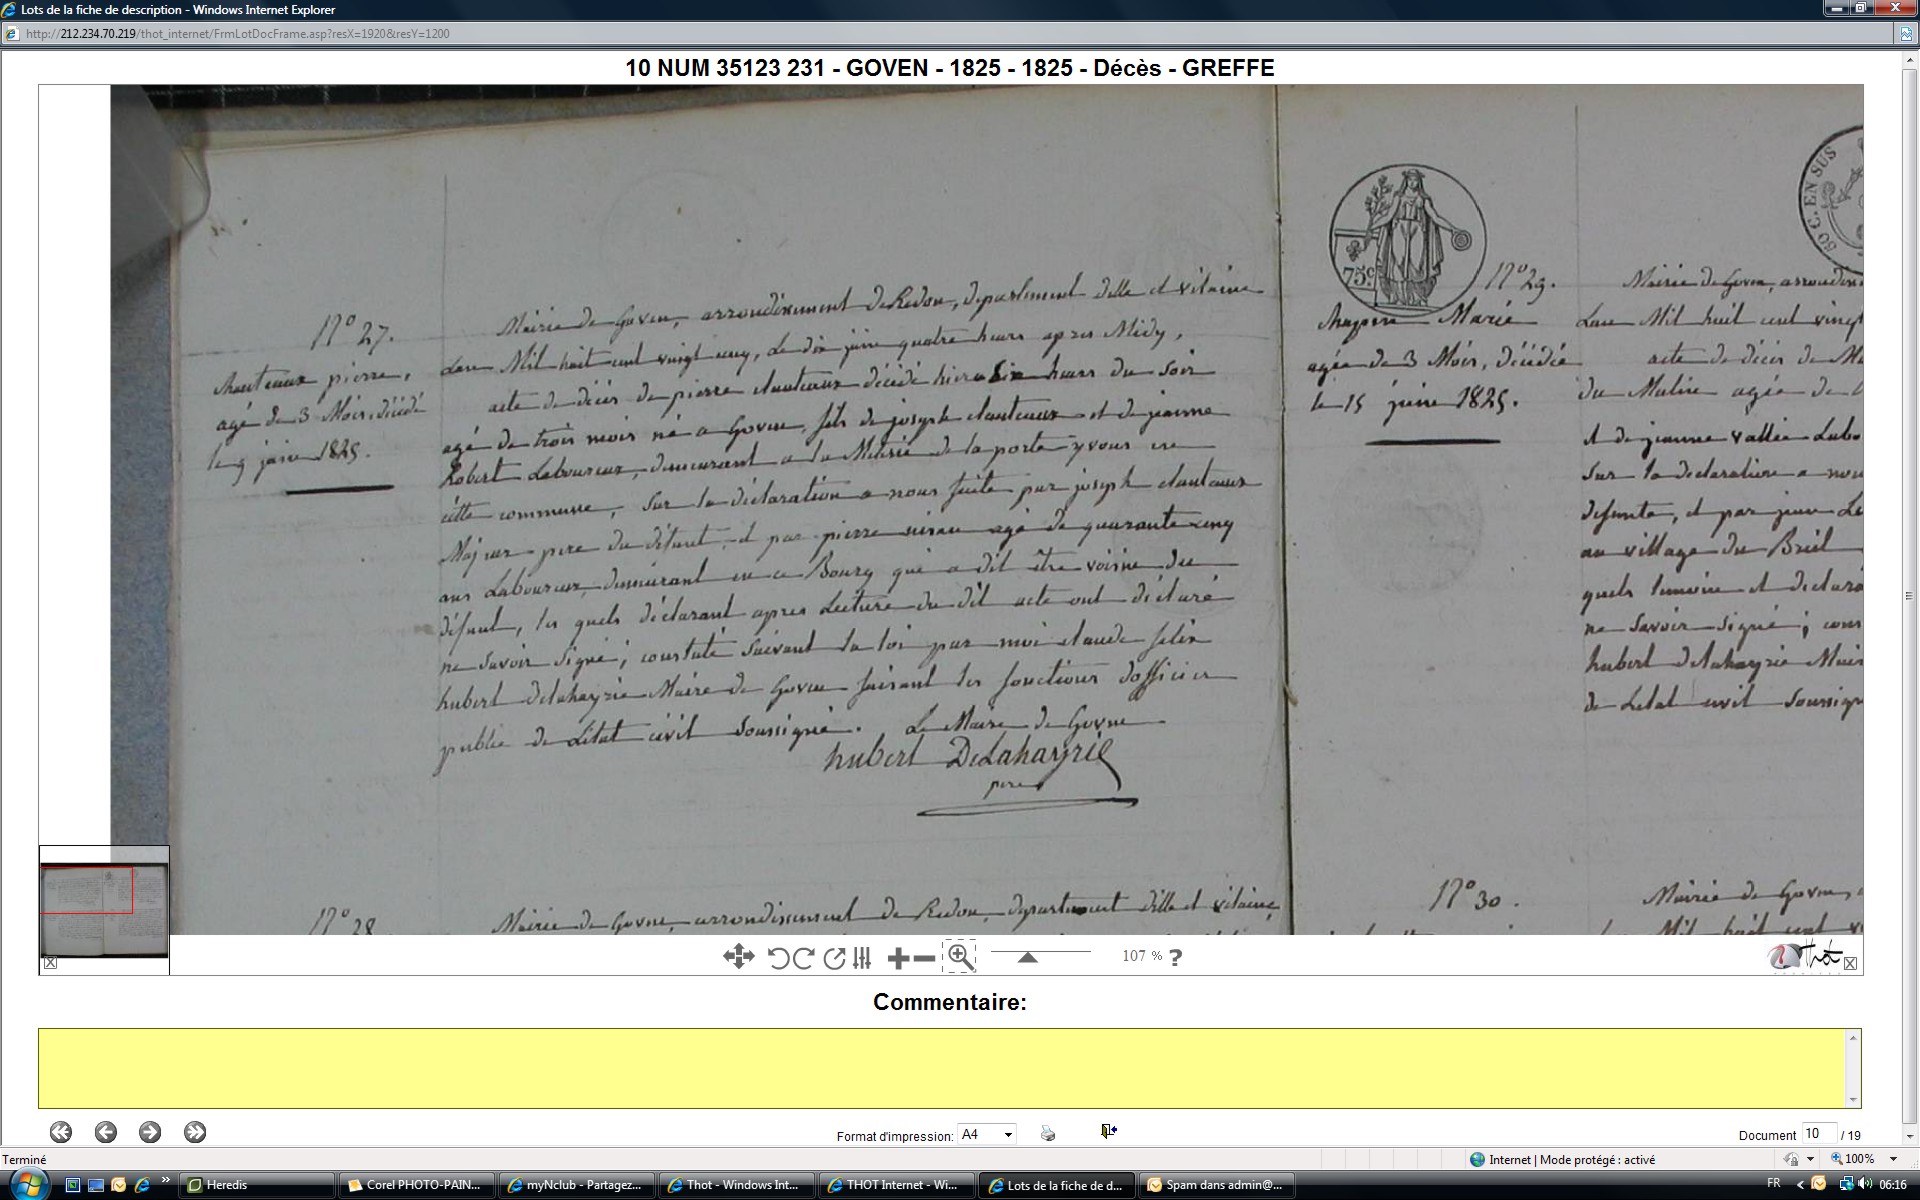 Lots de la fiche de description - Windows Internet Explorer
http://212.234.70.219/thot_internet/FrmLotDocFrame.asp?resX=1920&resY=1200
10 NUM 35123 231 - GOVEN - 1825 - 1825 - Décès - GREFFE
N° 27.
pierre,
agé de 3 Mois, décédé
le 9 juin 1825.
Mairie de Goven, arrondissement de Redon, departement dille et vilaine
Lan Mil huit cent vingt cinq, Le dix juin quatre heurs apres Midy,
acte de décés de pierre décédé hier a Six heurs du Soir
agé de trois mois né a Goven, fils de joseph et de jeanne
Robert Laboureur, demeurant a la Métairie de la porte en
cette commune, Sur la déclaration a nous faite par joseph
Majeur pere du défunt, et par pierre agé de quarante cinq
ans Laboureur, demeurant en ce Bourg qui a dit être voisin du
défunt, les quels déclarant apres Lecture du dit acte ont déclaré
ne Savoir Signé; constaté Suivant la loi par moi claude felix
hubert delahayrie Maire de Goven faisant les fonctions dofficier
public de Létat civil Soussigné. Le Maire de Goven
hubert DeLahayrie
pere
N° 28
Mairie de Goven, arrondissement de Redon, departement dille et vilaine,
75 c.
50 C. EN SUS
N° 29.
Marie
agée de 3 Mois, décédée
le 15 juin 1825.
Mairie de Goven,
Lan Mil huit cent vingt
acte de décés de
du Maline agée de
et de jeanne vallée
Sur la declaration a nou
defunte, et par jean
au village du Breil
quels temoin et declara
ne Savoir Signé; cons
hubert delahayrie Mair
de Létat civil Soussign
N° 30.
Mairie de Goven,
Mil huit cent v
107 % ?
Thot
Commentaire:
Format d'impression: A4
Document 10 / 19
Terminé
Internet | Mode protégé : activé
100%
Heredis
Corel PHOTO-PAIN...
myNclub - Partagez...
Thot - Windows Int...
THOT Internet - Wi...
Lots de la fiche de d...
Spam dans admin@...
FR
06:16